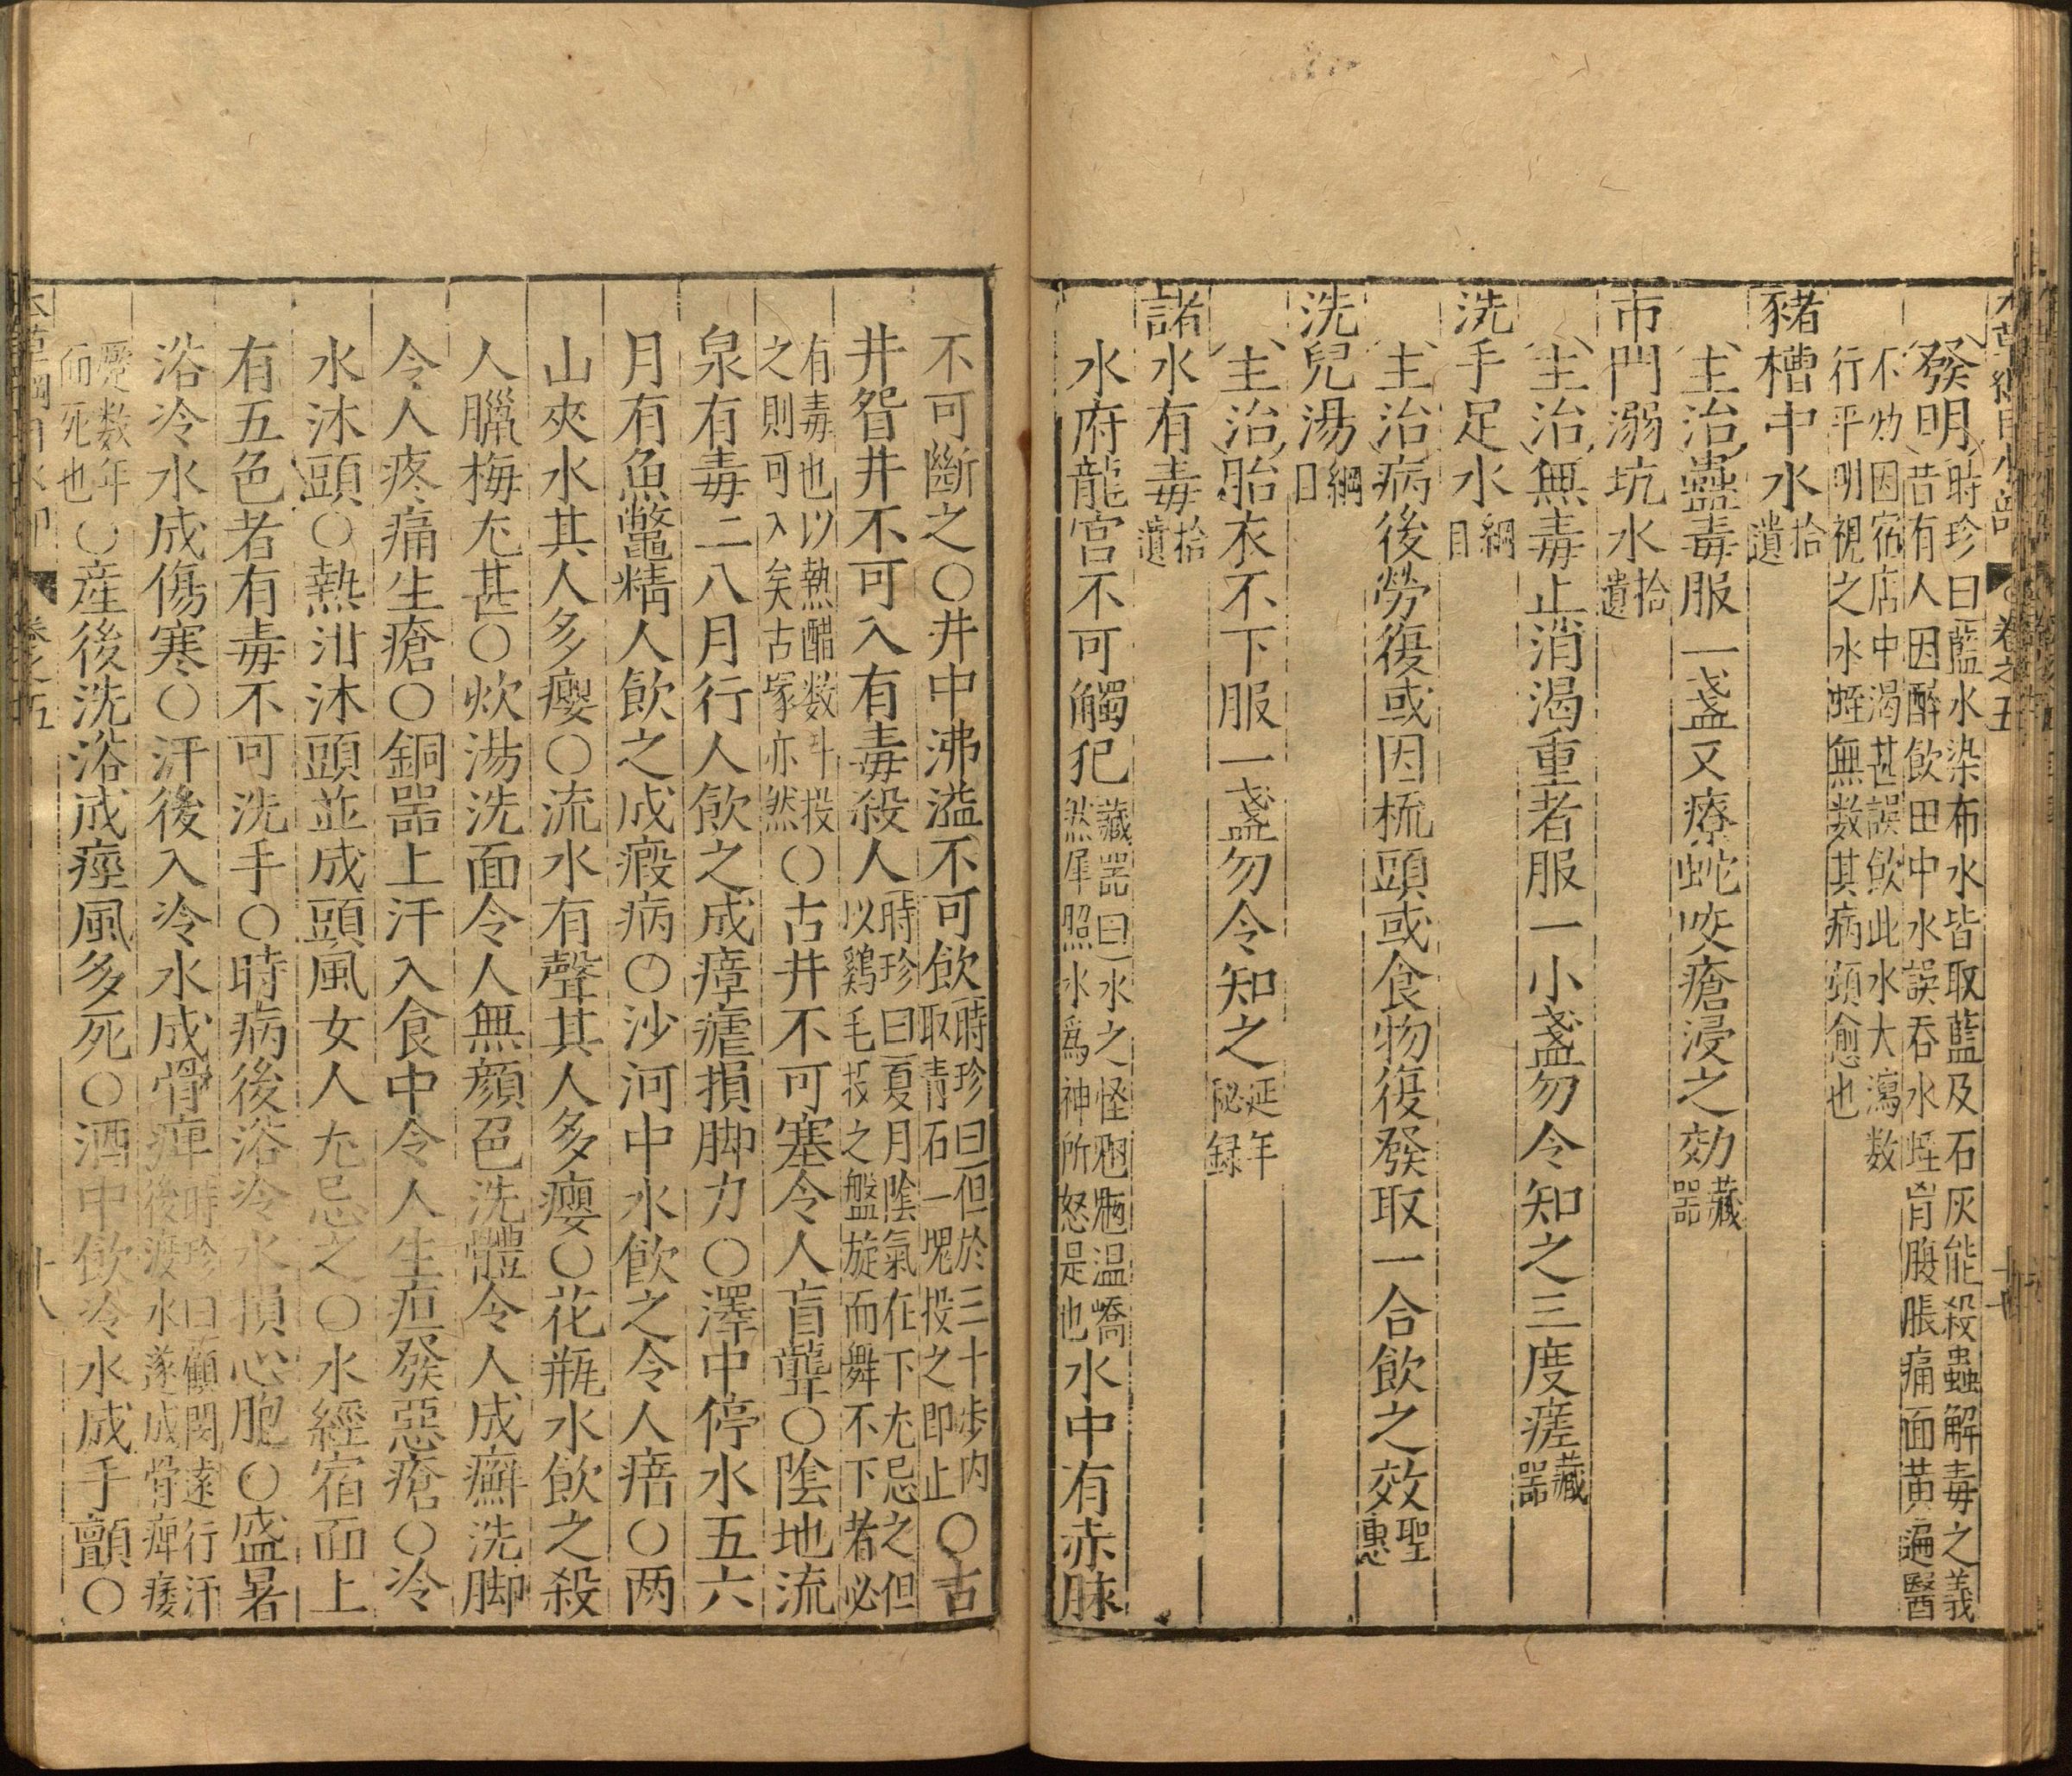 發明時珍曰藍水染布水皆取藍及石灰能殺蟲解毒之義
昔有人因醉飲田中水誤吞水蛭胷腹脹痛面黃遍醫
不効因宿店中渴甚誤飲此水大瀉数
行平明視之水蛭無数其病頓愈也
豬槽中水拾遺
主治蠱毒服一盞又療蛇咬瘡浸之効藏器
市門溺坑水拾遺
主治無毒止消渴重者服一小盞勿令知之三度瘥藏器
洗手足水綱目
主治病後勞復或因梳頭或食物復發取一合飲之效聖惠
洗兒湯綱目
主治胎衣不下服一盞勿令知之延年秘録
諸水有毒拾遺
水府龍宮不可觸犯藏器曰水之怪魍魎温嶠然犀照水爲神所怒是也水中有赤脉
不可斷之〇井中沸溢不可飲時珍曰但於三十歩内取青石一塊投之即止〇古
井眢井不可入有毒殺人時珍曰夏月隂氣在下尤忌之但以鷄毛投之盤旋而舞不下者必
有毒也以熱醋数斗投之則可入矣古塚亦然〇古井不可塞令人盲聾〇隂地流
泉有毒二八月行人飲之成瘴瘧損脚力〇澤中停水五六
月有魚鼈精人飲之成瘕病〇沙河中水飲之令人瘖〇两
山夾水其人多癭〇流水有聲其人多癭〇花瓶水飲之殺
人臘梅尤甚〇炊湯洗面令人無顔色洗體令人成癬洗脚
令人疼痛生瘡〇銅器上汗入食中令人生疸發惡瘡〇冷
水沐頭〇熱泔沐頭並成頭風女人尤忌之〇水經宿面上
有五色者有毒不可洗手〇時病後浴冷水損心胞〇盛暑
浴冷水成傷寒〇汗後入冷水成骨痺時珍曰顧閔遠行汗後渡水遂成骨痺痿
歷数年而死也〇産後洗浴成痙風多死〇酒中飲冷水成手顫〇
本草綱目水部 卷之五 十八